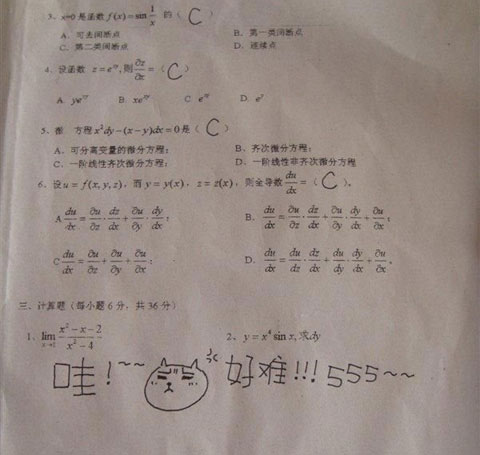 3、x=0 是函数 f(x)=sin 1/x 的（ C ）
A、可去间断点 B、第一类间断点
C、第二类间断点 D、连续点
4、设函数 z=e^{xy}, 则 ∂z/∂x =（ C ）
A. ye^{xy} B. xe^{xy} C. e^{xy} D. e^{y}
5、微 方程 x²dy-(x-y)dx=0 是（ C ）
A、可分离变量的微分方程； B、齐次微分方程；
C、一阶线性齐次微分方程； D、一阶线性非齐次微分方程
6、设 u=f(x,y,z)，而 y=y(x)，z=z(x)，则全导数 du/dx =（ C ）。
A du/dx = ∂u/∂z · dz/dx + ∂u/∂y · dy/dx； B、du/dx = ∂u/∂z · dz/dx + ∂u/∂y · dy/dx + ∂u/∂x；
C du/dx = ∂u/∂z + ∂u/∂y + ∂u/∂x； D、du/dx = du/dz · dz/dx + du/dy · dy/dx + ∂u/∂x。
三、计算题（每小题 6 分，共 36 分）
1、lim x²-x-2/x²-4 2、y=x⁴ sin x, 求dy
哇!~~ 好难!!! 555~~